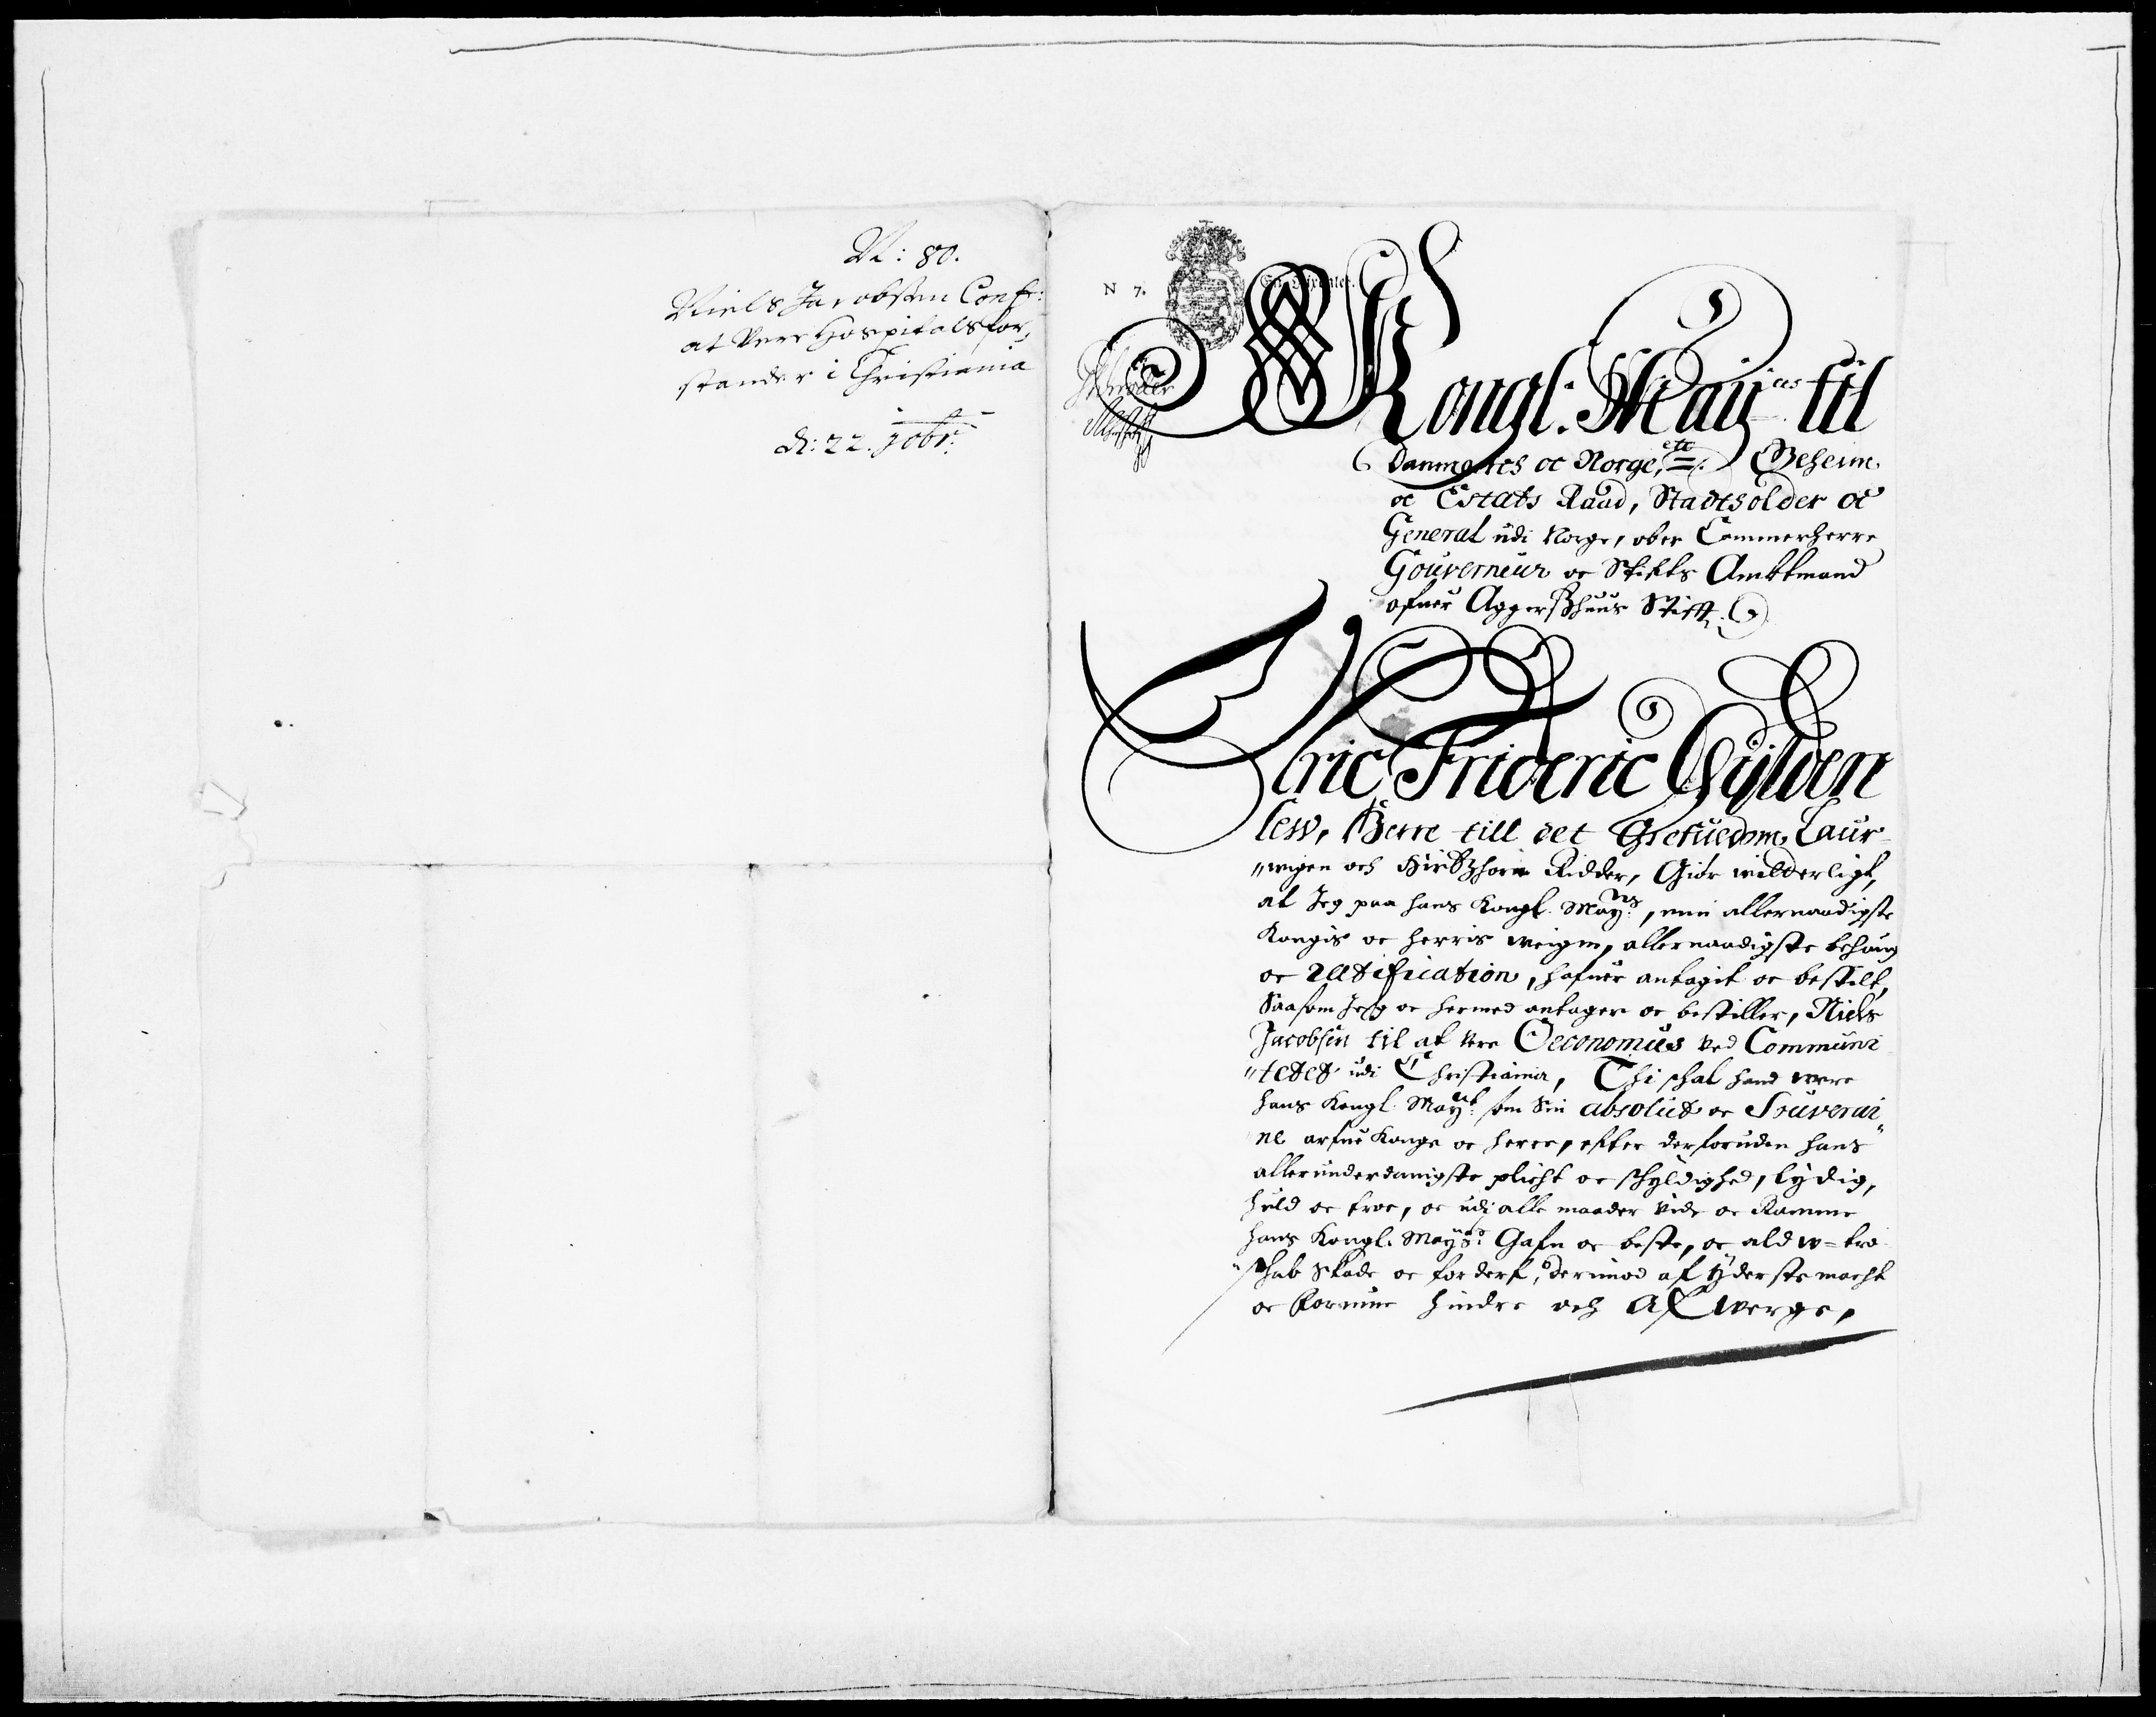 N: 80.
Niels Jacobsen Conf:
at Vere Hospitals for,
stander i Christiania
d: 22. 9obr:
N 7.
Kongl: Mayᵗˢ til
Danmarcs oc Norge, etc: Geheim.
oc Estats Raad, Stadtholder oc
General udi Norge, ober Cammerherre
Gouverneur oc Stiftts Amttmand
ofuer Aggerßhuus Stifft.
Ulric Frideric Gylden
lew, Herre till det Grefuedom, Laur
"wigen och Ridder, Giør witterligt,
at Jeg paa hans Kongl. Mayᵗˢ:, min allernaadigste
Kongis oc Herris weigne, allernaadigste behaug
oc Ratification, hafuer antagit oc bestilt,
Saasom Jeg oc hermed antager oc bestiller, Niels
Jacobsen til at Vere Oeconomus Ved Communi
"tetet udi Christiania, Thi schal hand were
hans Kongl. Mayᵗ: som Sin absolut oc Souverai"
ne arfue Konge oc Herre, efter derforuden hans
allerunderdanigste plicht oc schyldighed, lydig,
huld oc troe, oc udj alle maader Vide oc Ramme
hans Kongl. Mayᵗˢ: Gafn oc beste, oc ald w=tro
"schab Skade oc forderf, derimod af yderste macht
oc formue hindre och Afwerge,